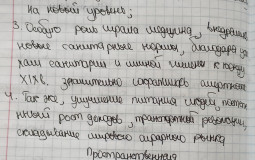 на новый уровень;
3. Особую роль играла медицина, внедрение
новые санитарные нормы, благодаря
санитарии и личной гигиене к концу
XIXв. значительно сократилась смертность
4. Так же, улучшение питания людей,
рост доходов, транспортной революции,
складывание мирового аграрного рынка
Пространственная